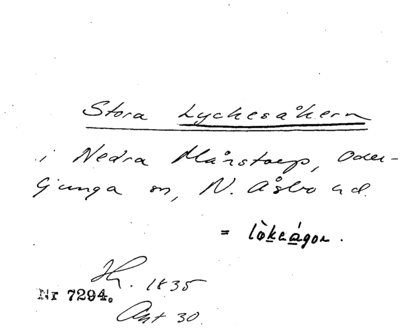 Stora Lyckesåkern
i Nedra Månstorp, Oder-
ljunga sn, N. Åsbo hd.
= lòkeågor.
Jh. 1835
Nr 7294.
Akt 30